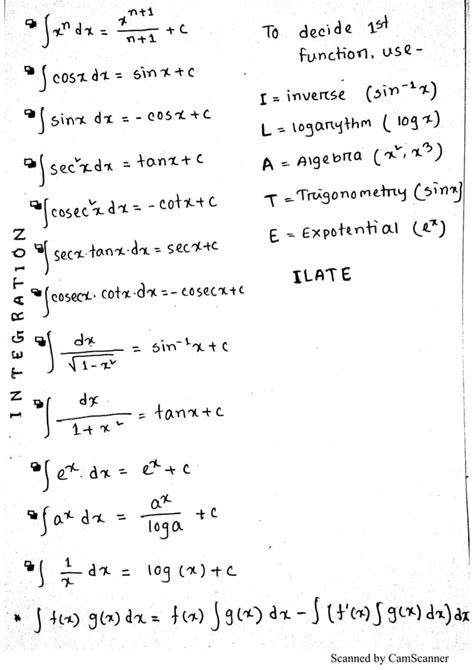 ∫xⁿ dx = xⁿ⁺¹/n+1 + c
∫cosx dx = sinx + c
∫sinx dx = - cosx + c
∫sec²x dx = tanx + c
∫cosec²x dx = - cotx + c
∫secx·tanx·dx = secx + c
∫cosecx·cotx·dx = - cosecx + c
∫dx/√1-x² = sin⁻¹x + c
∫dx/1+x² = tanx + c
∫eˣ·dx = eˣ + c
∫aˣ dx = aˣ/loga + c
∫1/x dx = log(x) + c
* ∫f(x) g(x) dx = f(x) ∫g(x) dx - ∫(f'(x) ∫g(x) dx) dx
INTEGRATION
To decide 1st
function, use -
I = inverse (sin⁻¹x)
L = logarythm (logx)
A = Algebra (x², x³)
T = Trigonometry (sinx)
E = Expotential (eˣ)
ILATE
Scanned by CamScanner